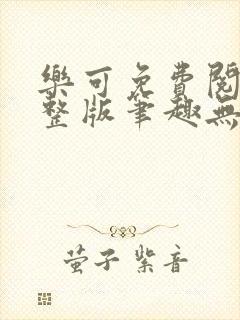 樂可免費閱
整版筆趣無
萤子 紫音